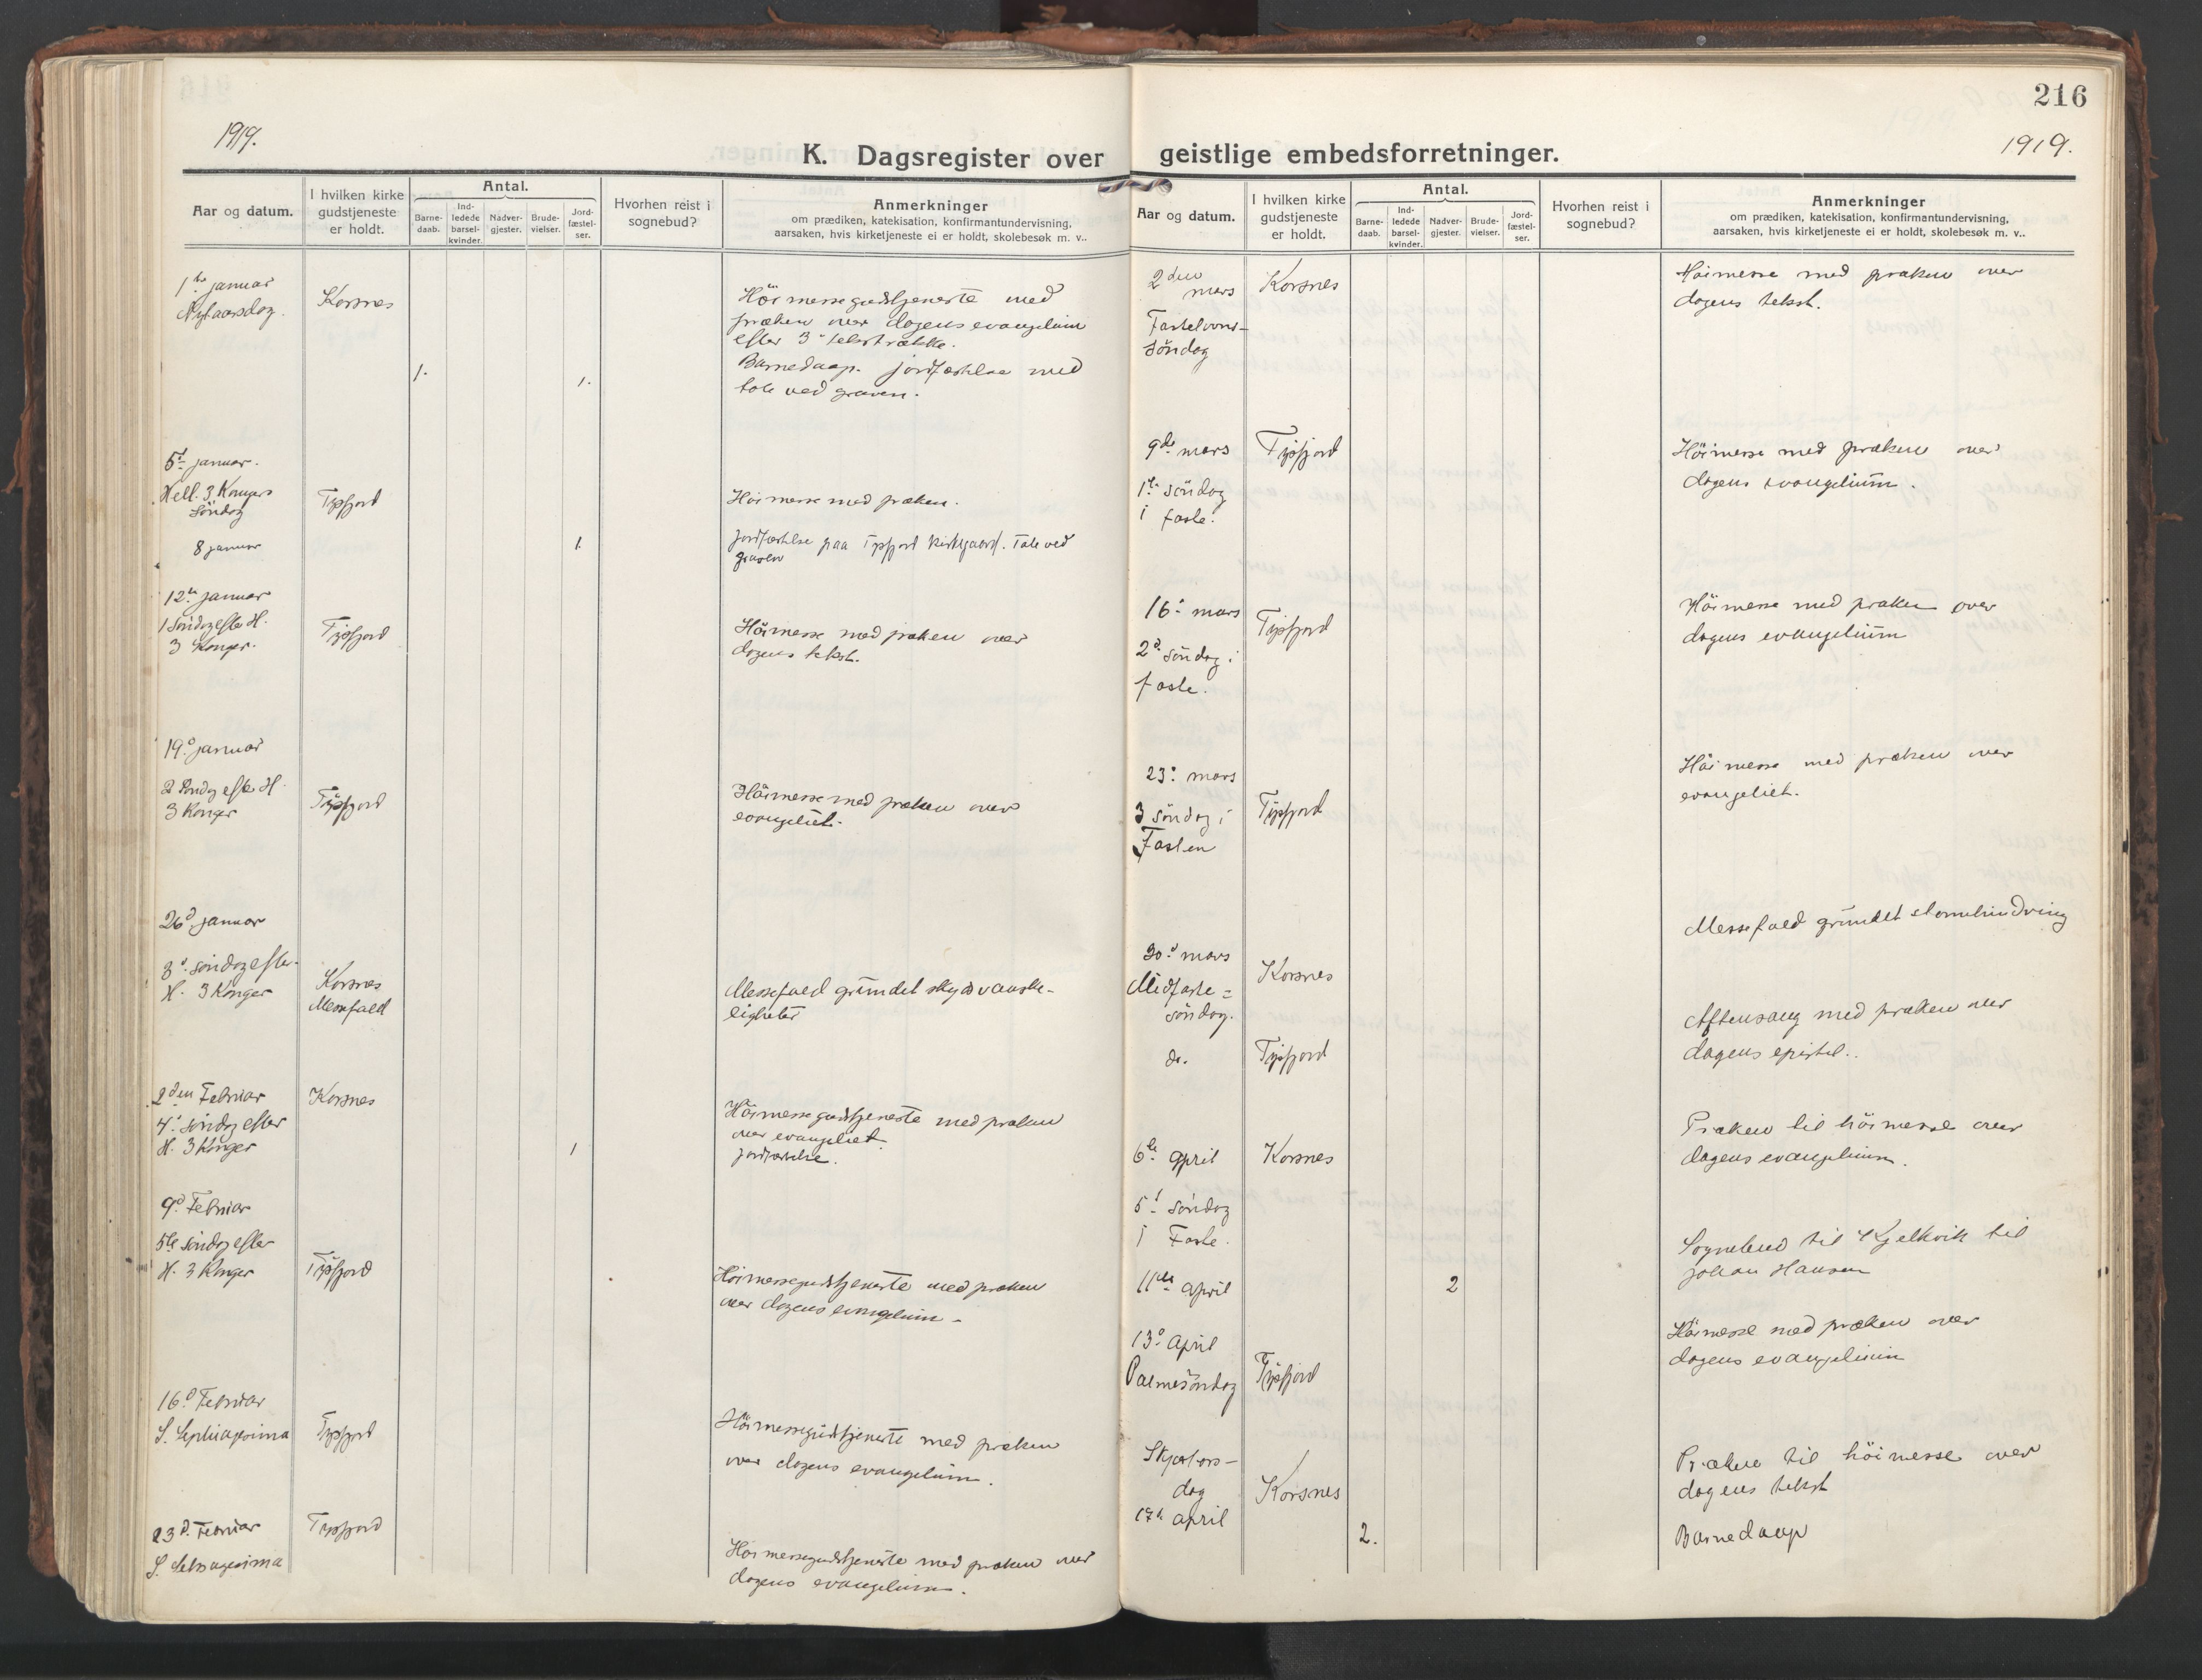 216
1919.
1919.
K. Dagsregister over geistlige embedsforretninger.
Aar og datum.
I hvilken kirke
gudstjeneste
er holdt.
Antal.
Barne-
daab.
Ind-
ledede
barsel-
kvinder.
Nadver-
gjester.
Brude-
vielser.
Jord-
fæstel-
ser.
Hvorhen reist i
sognebud?
Anmerkninger
om prædiken, katekisation, konfirmantundervisning,
aarsaken, hvis kirketjeneste ei er holdt, skolebesøk m. v..
1ste januar
Nytaarsdag.
Korsnes
Höimessegudstjeneste med
præken over dagens evangelium
efter 3. tekstrække.
1.
1.
Barnedaap. jordfæstelse med
tale ved graven.
5. januar.
Hell. 3 Kongers
Söndag
Tysfjord
Höimesse med præken.
8 januar
1.
Jordfæstelse paa Tysfjord kirkegaard. Tale ved
graven
12te januar
1 Söndag efter H.
3 Konger.
Tysfjord
Höimesse med præken over
dagens tekst.
19d januar
2 Söndag efter H.
3 Konger
Tysfjord
Höimesse med præken over
evangeliet.
26d januar
3d. söndag efter
H. 3 Konger
Korsnes
Messefald
Messefald grundet skydsvanske-
ligheter
2den Februar
4. söndag efter
H. 3 Konger
Korsnes
1
Höimessegudstjeneste med præken
over evangeliet.
Jordfæstelse.
9d Februar
5te söndag efter
H. 3 Konger
Tysfjord
Höimessegudstjeneste med præken
over dagens evangelium -
16d Februar
S. Septuagesima
Tysfjord
Höimessegudstjeneste med præken
over dagens evangelium.
23d. Februar
S. Seksagesima
Tysfjord
Höimessegudstjeneste med præken over
dagens evangelium.
Aar og datum.
I hvilken kirke
gudstjeneste
er holdt.
Antal.
Barne-
daab.
Ind-
ledede
barsel-
kvinder.
Nadver-
gjester.
Brude-
vielser.
Jord-
fæstel-
ser.
Hvorhen reist i
sognebud?
Anmerkninger
om prædiken, katekisation, konfirmantundervisning,
aarsaken, hvis kirketjeneste ei er holdt, skolebesøk m. v..
2den
mars
Fastelavns-
söndag
Korsnes
Höimesse med præken over
dagens tekst.
9de mars
1te söndag
i faste.
Tysfjord
Höimesse med præken over
dagens evangelium.
16. mars
2d. söndag i
faste.
Tysfjord
Höimesse med præken over
dagens evangelium
23. mars
3 söndag i
Fasten
Tysfjord
Höimesse med præken over
evangeliet.
30. mars
Midfaste=
söndag.
Korsnes
Messefald grundet stormhindring
do.
Tysfjord
Aftensang med præken over
dagens epistel.
6te april
5. söndag
i Faste.
Korsnes
Præken til höimesse over
dagens evangelium.
11te april
2
Sognebud til Kjelkvik til
Johan Hansen
13d April
Palmesöndag
Tysfjord
Höimesse med præken over
dagens evangelium
Skjærtors-
dag
17de april
Korsnes
Præken til höimesse over
dagens tekst
2.
Barnedaap